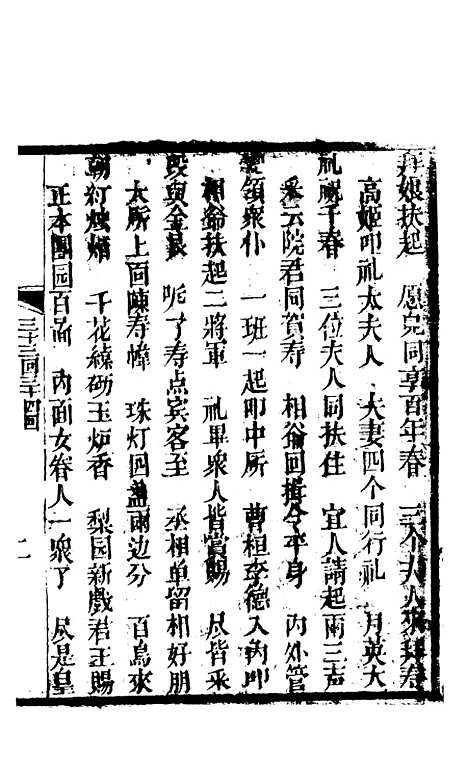 拜娘扶起 愿兒同享百年春 三个夫人來拜寿
高姬叩礼太夫人 夫妻四个同行礼 月英大
礼祝千春 三位夫人同扶住 宜人請起兩三声
釆云院君同賀寿 相爺回揖令平身 內外管
領衆仆 一班一起叩中所 曹桓李德入內叩
相爺扶起二將軍 礼畢衆人皆賞賜 尽皆釆
叚與金銀 呢了寿点宾客至 丞相单留相好朋
大所上面陳寿幛 珠灯回盖兩边分 百鳥來
朝紅燭熖 千花繞砌玉炉香 梨园新戲君王賜
正本團园百面 內面女眷人一衆了 尽是皇
三十三回三十四回
二